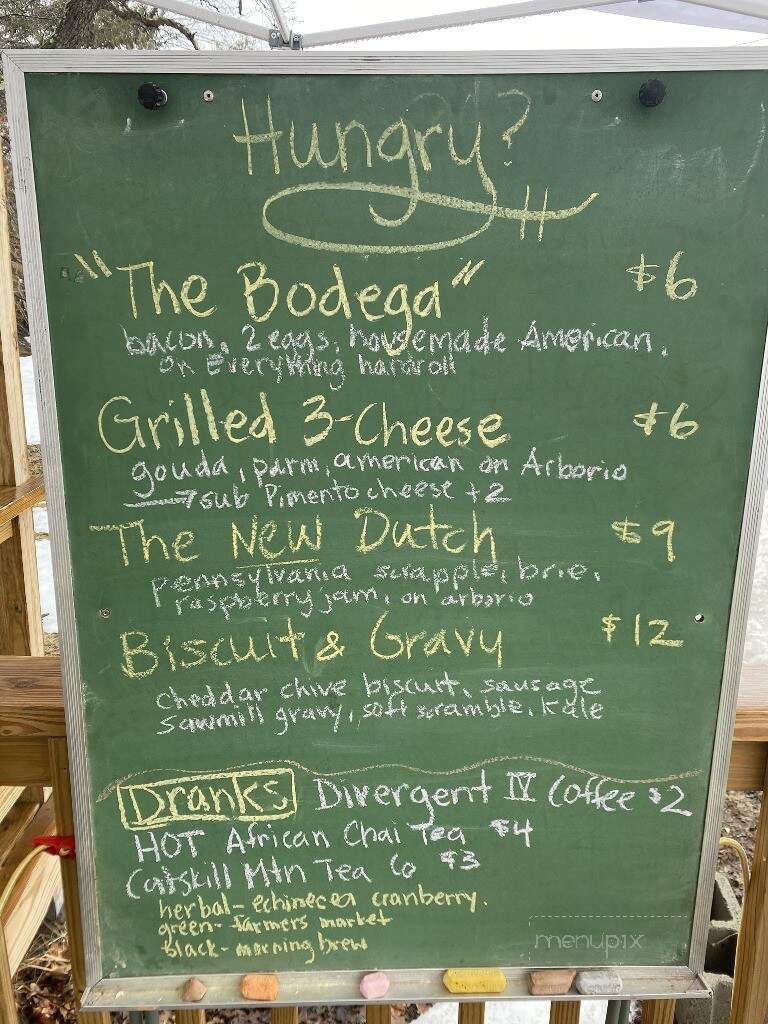 Hungry?
"The Bodega" $6
bacon, 2 eggs, housemade American,
on everything hardroll
Grilled 3-Cheese $6
gouda, parm, american on Arborio
→ sub Pimento cheese +2
The NEW Dutch $9
pennsylvania scrapple, brie,
raspberry jam, on arborio
Biscuit & Gravy $12
cheddar chive biscuit, sausage
sawmill gravy, soft scramble, kale
Dranks Divergent IV Coffee $2
HOT African Chai Tea $4
Catskill Mtn Tea Co $3
herbal- echinecea cranberry.
green- farmers market
black- morning brew
menupix